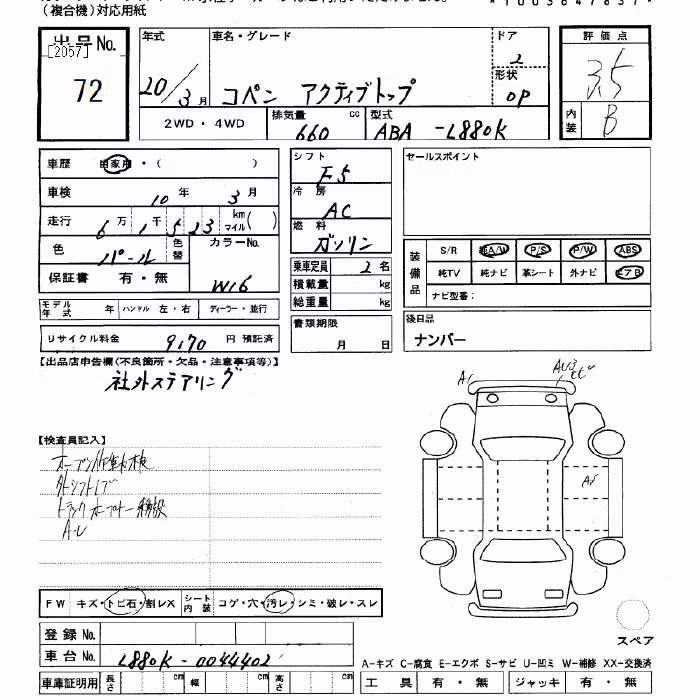 (複合機)対応用紙
出品No. [2057] 72
年式 20/3月
車名・グレード コペン アクティブトップ
ドア 2
形状 OP
評価点 3.5
内装 B
2WD・4WD
排気量 660 cc
型式 ABA-L880K
車歴 自家用・( )
車検 10年 3月
走行 6万1千523 km マイル( )
色 パール 色替
カラーNo. W16
保証書 有・無
モデル年式 年 ハンドル 左・右 ディーラー・並行
リサイクル料金 9,170 円 預託済
シフト F5
冷房 AC
燃料 ガソリン
乗車定員 2名
積載量 kg
総重量 kg
書類期限 月 日
セールスポイント
装備品
S/R 純A/W P/S P/W ABS
純TV 純ナビ 革シート 外ナビ エアB
ナビ型番:
後日品
ナンバー
【出品店申告欄(不良箇所・欠品・注意事項等)】
社外ステアリング
A1
A1
【検査員記入】
FW キズ・トビ石・割レX シート内装 コゲ・穴・汚レ・シミ・破レ・スレ
登録No.
車台No. L880K-0044402
スペア
A-キズ C-腐食 E-エクボ S-サビ U-凹ミ W-補修 XX-交換済
車庫証明用 長さ cm 幅 cm 高さ cm
工具 有・無 ジャッキ 有・無